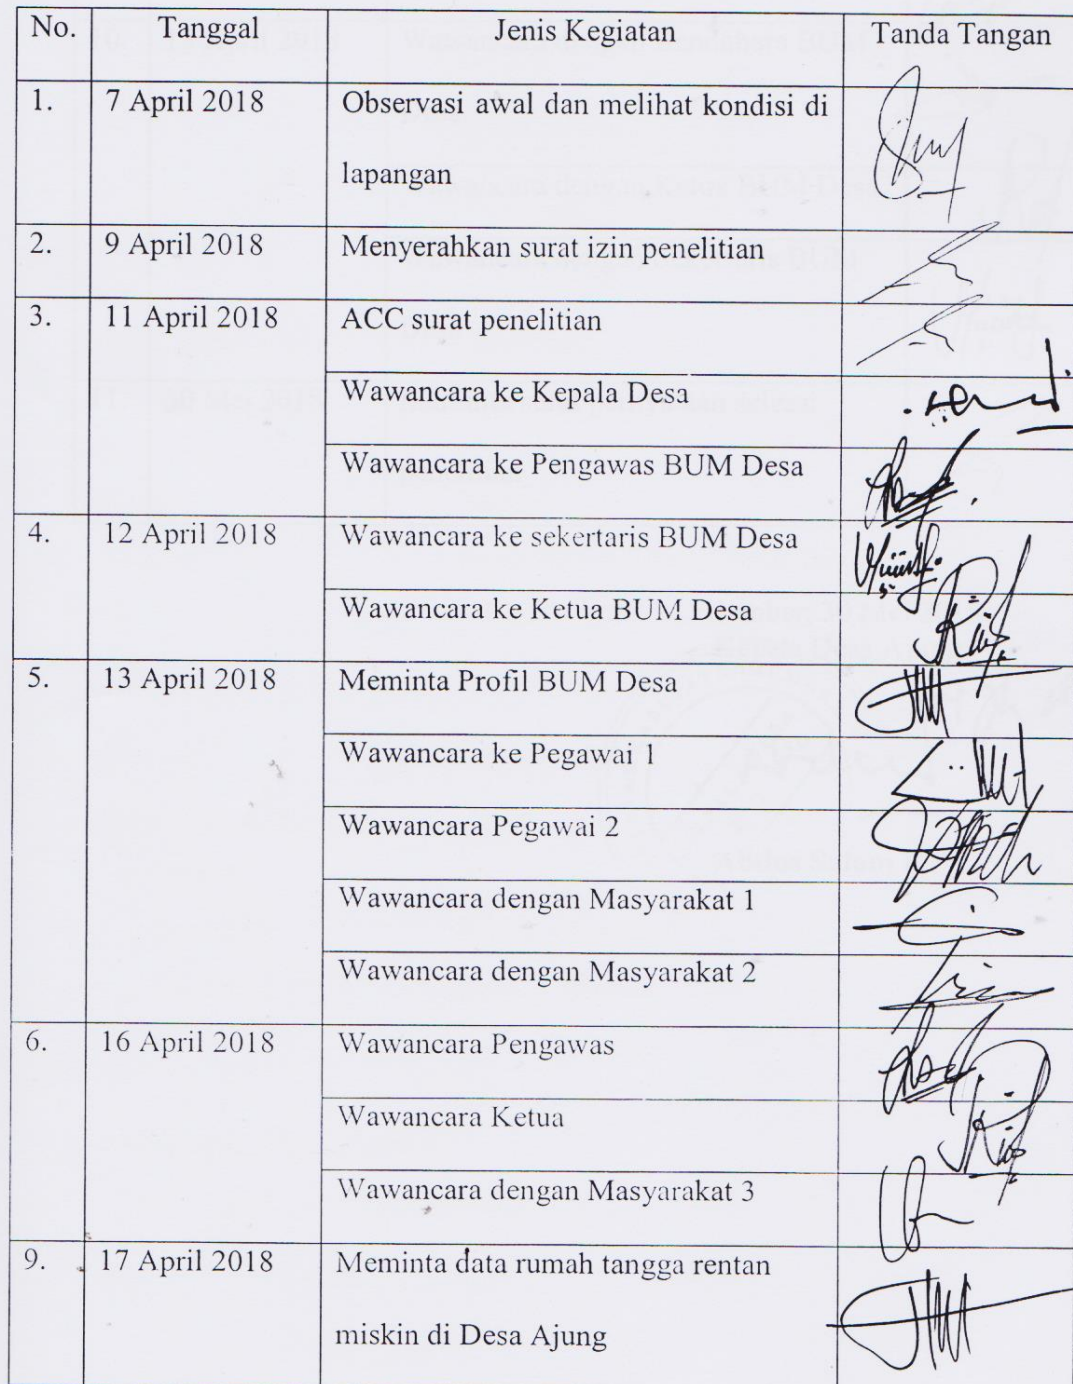 No. Tanggal Jenis Kegiatan Tanda Tangan
1. 7 April 2018 Observasi awal dan melihat kondisi di
lapangan
2. 9 April 2018 Menyerahkan surat izin penelitian
3. 11 April 2018 ACC surat penelitian
Wawancara ke Kepala Desa
Wawancara ke Pengawas BUM Desa
4. 12 April 2018 Wawancara ke sekertaris BUM Desa
Wawancara ke Ketua BUM Desa
5. 13 April 2018 Meminta Profil BUM Desa
Wawancara ke Pegawai 1
Wawancara Pegawai 2
Wawancara dengan Masyarakat 1
Wawancara dengan Masyarakat 2
6. 16 April 2018 Wawancara Pengawas
Wawancara Ketua
Wawancara dengan Masyarakat 3
9. 17 April 2018 Meminta data rumah tangga rentan
miskin di Desa Ajung